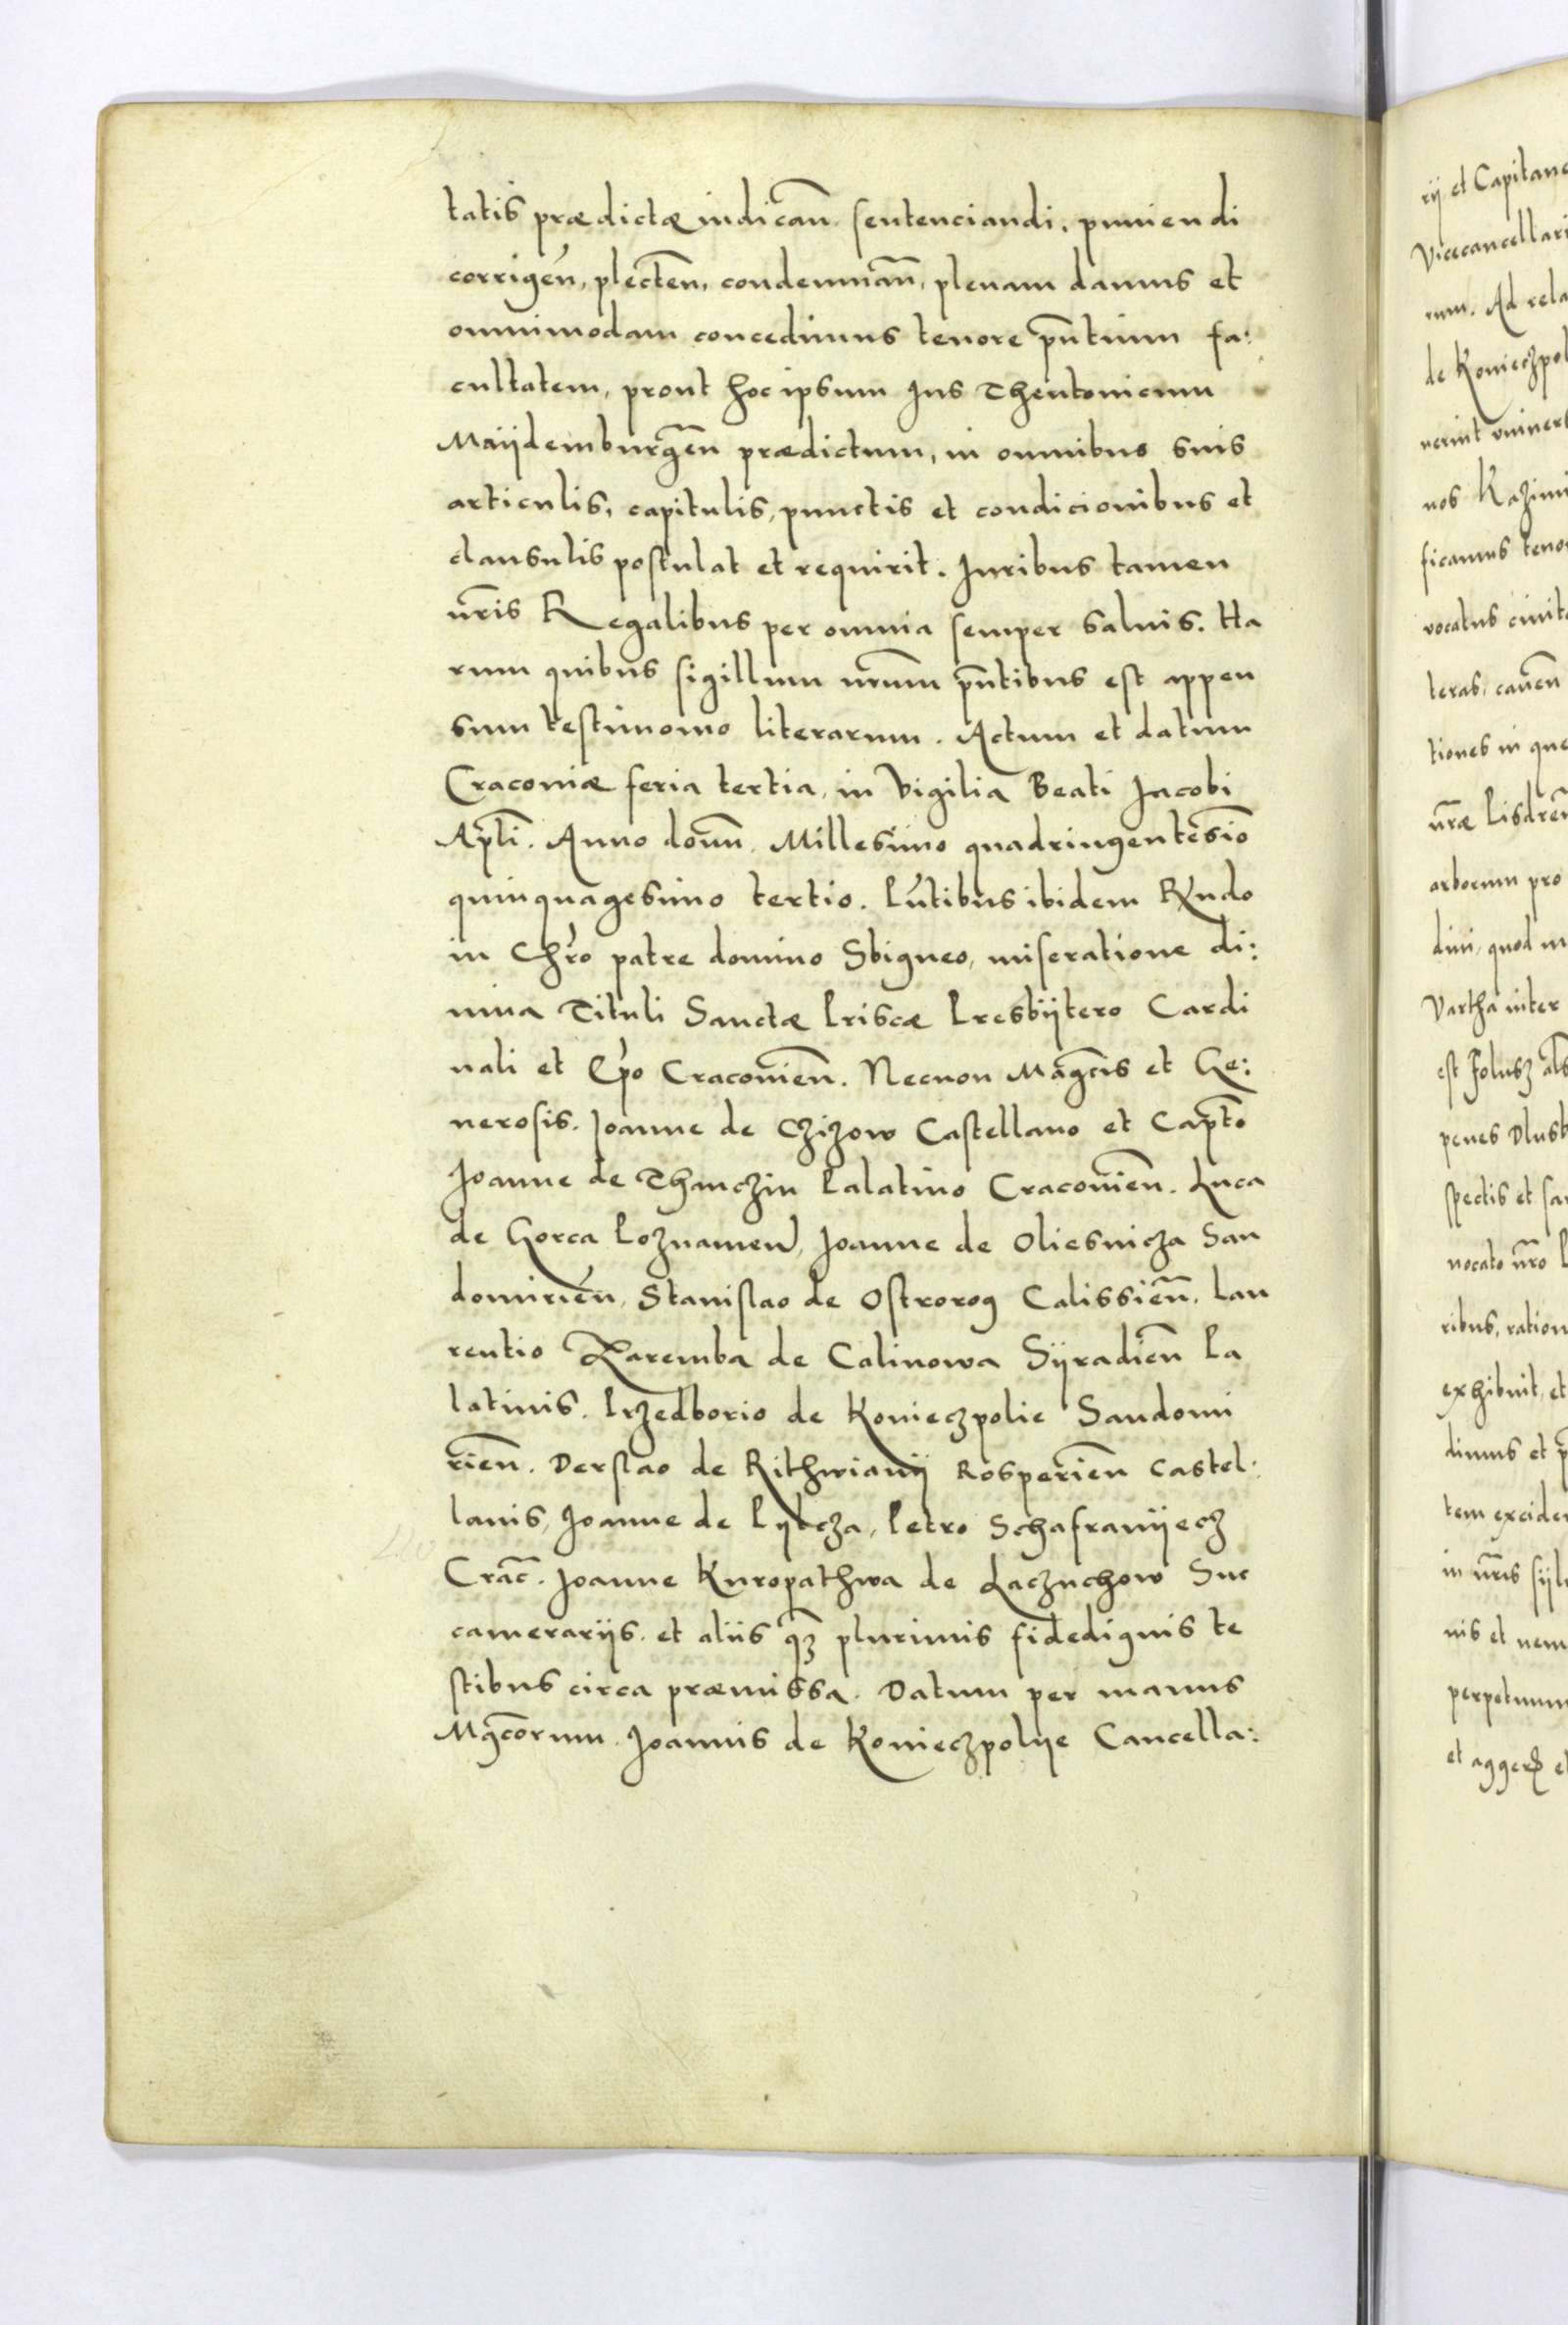 tatis prædictæ iudicań. sentenciandi, puniendi
corrigeń, plecteń, condemnań, plenam damus et
omnimodam concedimus tenore pñtium fa:
cultatem, prout hoc ipsum Ius Theutonicum
Maÿdemburgeñ prædictum, in omnibus suis
articulis, capitulis, punctis et condicionibus et
clausulis postulat et requirit. Iuribus tamen
nr̃is Regalibus per omnia semper saluis. Ha
rum quibus sigillum nr̃um pñtibus est appen
sum testimonio literarum. Actum et datum
Cracoviæ feria tertia, in Vigilia Beati Jacobi
Apl̃i. Anno domñ. Millesimo quadringentesiõ
quinquagesimo tertio. Pñtibus ibidem Rñdo
in Chr̃o patre domino Sbigneo, miseratione di:
uina Tituli Sanctæ Priscæ Presbÿtero Cardi
nali et Ep̃o Cracovieñ. Necnon Magcĩs et Ge:
nerosis. Joanne de Czizow Castellano et Capt̃o
Joanne de Thanczin Palatino Cracovieñ. Luca
de Gorca Poznanień, Joanne de Oliesnicza San
domirień, Stanislao de Ostrorog Calissieñ. Lau
rentio Zaremba de Calinowa Sÿradieñ Pa
latinis. Przedborio de Konieczpolie Sandomi
rieñ. Derslao de Rithwianÿ Rosperieñ Castel:
lanis, Joanne de Pÿlcza, Petro Schafranÿecz
Crac̃. Joanne Kuropathwa de Laczuchow Suc
camerarÿs. et aliis qꝫ plurimis fidedignis te
stibus circa præmissa. Datum per manus
Mgc̃orum. Joannis de Konieczpolÿe Cancella:
rÿ et Capitane
Vicecancellari
rum. Ad rela
de Konieczpol
uerint vniuers
nos Kazimi
ficamus tenor
vocatus ciuita
teras, caueñ
tiones in que
nr̃æ
arborum pro
dini, quod in
Vartha inter
est Folusz als̃
penes Dlusk
spectis et sa
uocato nr̃o
ribus, ration
exhibuit, et
dimus et p
tem exciden
in nr̃is sÿlu
nis et nem
perpetuum
et agger et